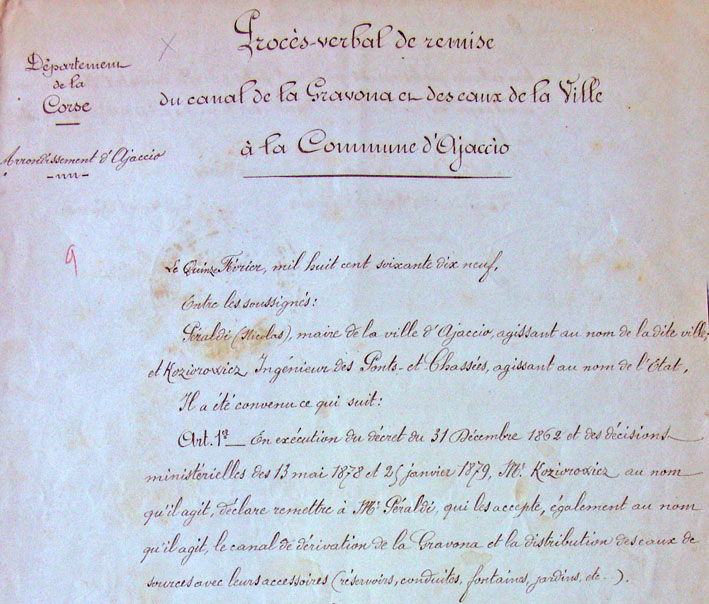 Procès-verbal de remise
du canal de la Gravona et des eaux de la Ville
à la Commune d'Ajaccio
Département
de la
Corse
Arrondissement d'Ajaccio
9
Le Quinze Février, mil huit cent soixante dix neuf,
Entre les soussignés:
Péraldi (Nicolas), maire de la ville d'Ajaccio, agissant au nom de la dite ville;
et Koziorowicz Ingénieur des Ponts-et-Chassées, agissant au nom de l'Etat,
Il a été convenu ce qui suit:
Art. 1er_ En exécution du décret du 31 Décembre 1862 et des décisions
ministérielles des 13 mai 1878 et 25 janvier 1879, Mr Koziorowicz au nom
qu'il agit, déclare remettre à Mr Péraldi, qui les accepte, également au nom
qu'il agit, le canal de dérivation de la Gravona et la distribution des eaux de
sources avec leurs accessoires (réservoirs, conduites, fontaines, jardins, etc.).